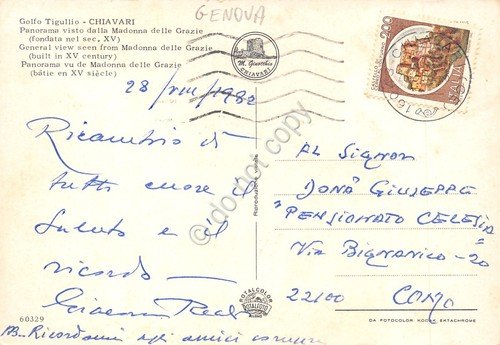 GENOVA
Golfo Tigullio - CHIAVARI
Panorama visto dalla Madonna delle Grazie
(fondata nel sec. XV)
General view seen from Madonna delle Grazie
(built in XV century)
Panorama vu de Madonna delle Grazie
(bâtie en XV siècle)
M. Gnocchio
CHIAVARI
200
ITALIA
28/VIII/1982
Ricambio di
tutti cuore il
saluto e il
ricordo -
AL SIGNOR
DONÀ GIUSEPPE
"PENSIONATO CELESIA"
Via BIGNANICO - 20
22100 COMO
Riproduzione vietata
ROTALCOLOR
ROTALFOTO
MILANO
60329
NB - Ricordami agli amici
DA FOTOCOLOR KODAK EKTACHROME
do not copy